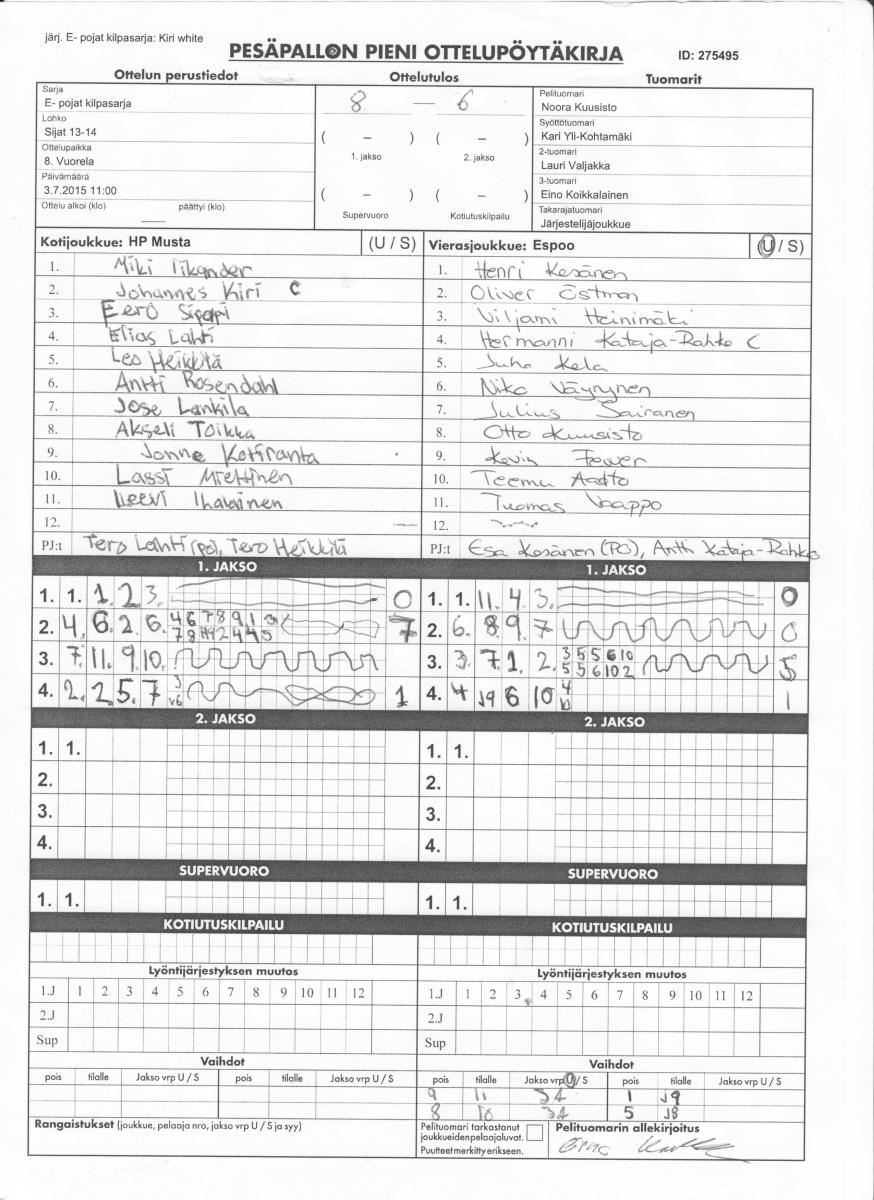 järj. E- pojat kilpasarja: Kiri white
PESÄPALLON PIENI OTTELUPÖYTÄKIRJA
ID: 275495
Ottelun perustiedot
Ottelutulos
Tuomarit
Sarja
E- pojat kilpasarja
Lohko
Sijat 13-14
Ottelupaikka
8. Vuorela
Päivämäärä
3.7.2015 11:00
Ottelu alkoi (klo) päättyi (klo)
8 — 6
( – ) ( – )
1. jakso 2. jakso
( – ) ( – )
Supervuoro Kotiutuskilpailu
Pelituomari
Noora Kuusisto
Syöttötuomari
Kari Yli-Kohtamäki
2-tuomari
Lauri Valjakka
3-tuomari
Eino Koikkalainen
Takarajatuomari
Järjestelijäjoukkue
Kotijoukkue: HP Musta (U / S)
1. Miki Tikander
2. Johannes Kiri C
3. Eero
4. Elias Lahti
5. Leo Heikkilä
6. Antti Rosendahl
7. Jose Lankila
8. Akseli Toikka
9. Jonne Kotiranta
10. Lassi Miettinen
11. Leevi
12.
PJ:t Tero Lahti (po), Tero Heikkilä
Vierasjoukkue: Espoo (U / S)
1. Henri Kesänen
2. Oliver Östman
3. Viljami Heinimäki
4. Hermanni Kataja-Rahko C
5. Juho Kela
6. Niko Väyrynen
7. Julius Sairanen
8. Otto Kuusisto
9. Kevin Fewer
10. Teemu Aalto
11. Tuomas Vaappo
12.
PJ:t Esa Kesänen (PO), Antti Kataja-Rahko
1. JAKSO
1. 1. 1. 2. 3. 0
2. 4. 6. 2 6. 7
3. 7. 11. 9. 10.
4. 2. 2. 5. 7 1
1. JAKSO
1. 1. 11. 4 3. 0
2. 6. 8. 9. 7 0
3. 3. 7 1. 2. 3 5 5 6 10 5
5 5 6 10 2
4. 4 J9 6 10 1
2. JAKSO
1. 1.
2.
3.
4.
2. JAKSO
1. 1.
2.
3.
4.
SUPERVUORO
1. 1.
SUPERVUORO
1. 1.
KOTIUTUSKILPAILU
KOTIUTUSKILPAILU
Lyöntijärjestyksen muutos
1.J 1 2 3 4 5 6 7 8 9 10 11 12
2.J
Sup
Lyöntijärjestyksen muutos
1.J 1 2 3 4 5 6 7 8 9 10 11 12
2.J
Sup
Vaihdot
pois tilalle Jakso vrp U / S pois tilalle Jakso vrp U / S
Vaihdot
pois tilalle Jakso vrp U / S pois tilalle Jakso vrp U / S
9 11 1 J9
8 10 5 J8
Rangaistukset (joukkue, pelaaja nro, jakso vrp U / S ja syy)
Pelituomari tarkastanut
joukkueidenpelaajaluvat.
Puutteet merkitty erikseen.
Pelituomarin allekirjoitus